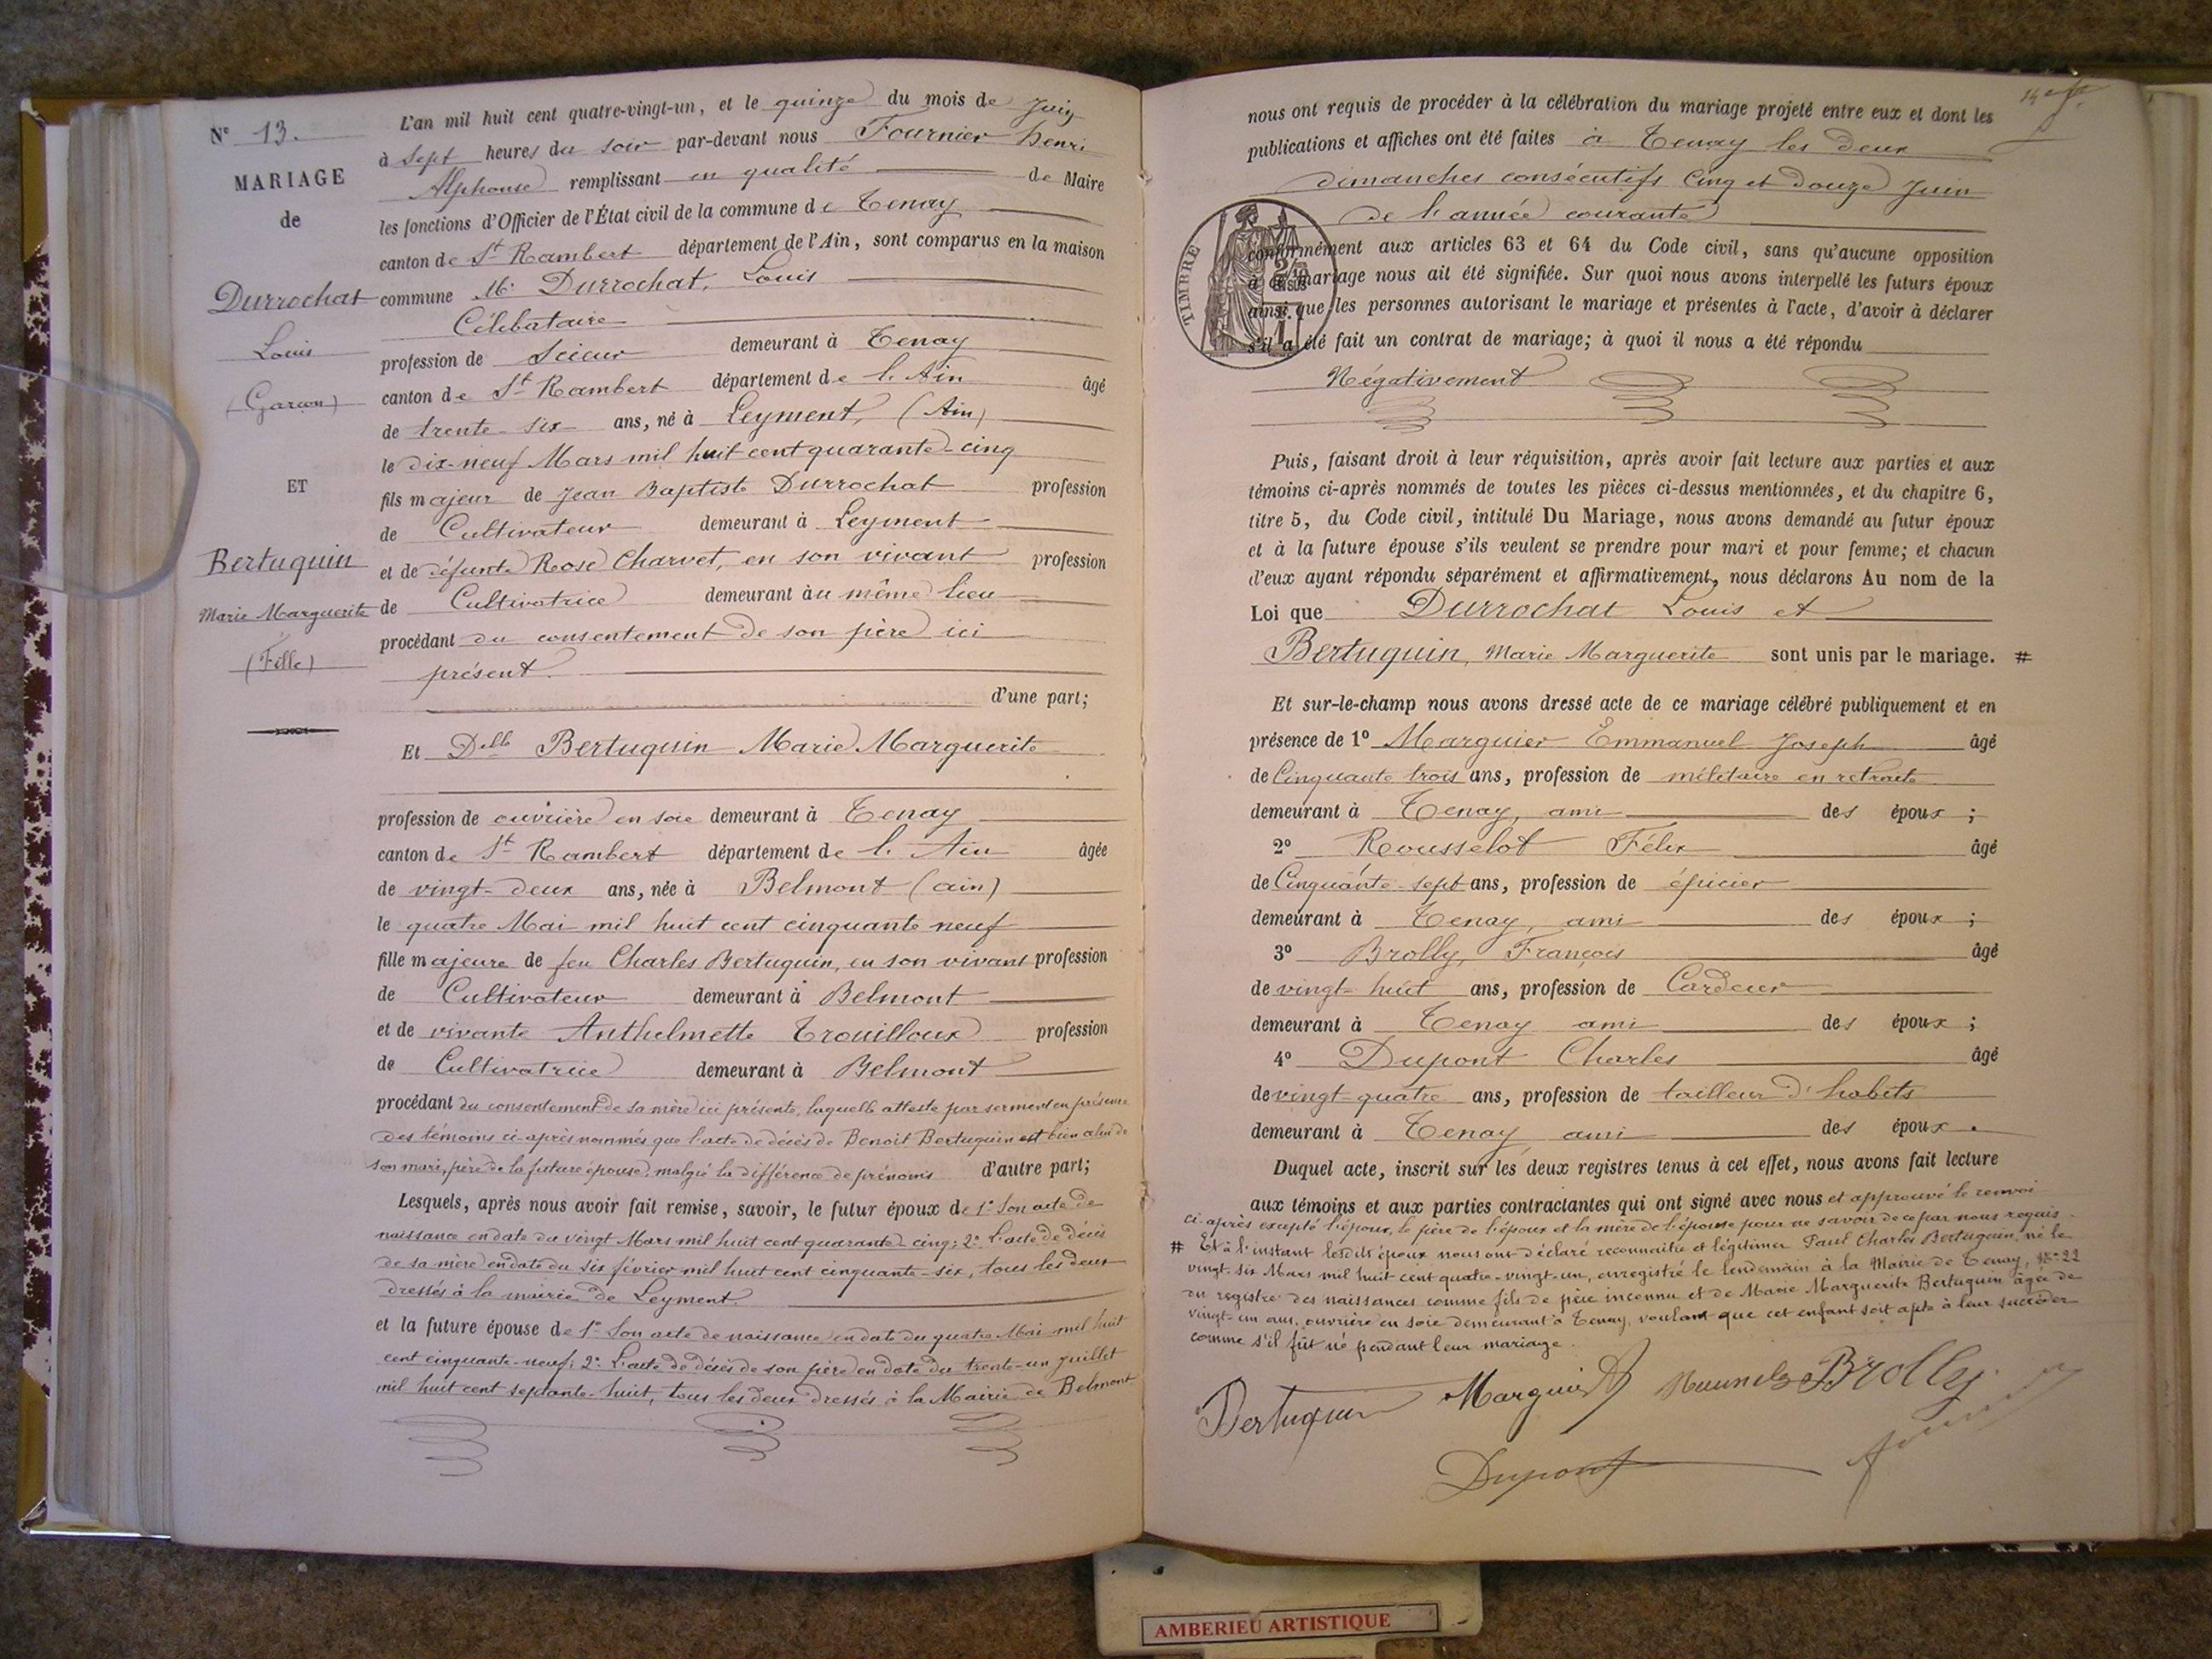 N° 13.
MARIAGE
de
Durrochat
Louis
(Garçon)
ET
Bertuquin
Marie Marguerite
(Fille)
L'an mil huit cent quatre-vingt-un, et le quinze du mois de Juin
à Sept heures du soir par-devant nous Fournier henri
Alphonse remplissant en qualité de Maire
les fonctions d'Officier de l'État civil de la commune de Tenay
canton de St Rambert département de l'Ain, sont comparus en la maison
commune Mr Durrochat, Louis
Célibataire
profession de Scieur demeurant à Tenay
canton de St Rambert département de l'Ain âgé
de trente-six ans, né à Leyment, (Ain)
le dix-neuf Mars mil huit cent quarante-cinq
fils majeur de Jean Baptiste Durrochat profession
de Cultivateur demeurant à Leyment
et de défunte Rose Charvet, en son vivant profession
de Cultivatrice demeurant àu même lieu
procédant du consentement de son père ici
présent.
d'une part;
Et Delle Bertuquin Marie Marguerite
profession de ouvrière en soie demeurant à Tenay
canton de St Rambert département de l'Ain âgée
de vingt-deux ans, née à Belmont (ain)
le quatre Mai mil huit cent cinquante neuf
fille majeure de feu Charles Bertuquin, en son vivant profession
de Cultivateur demeurant à Belmont
et de vivante Anthelmette Trouilloux profession
de Cultivatrice demeurant à Belmont
procédant du consentement de sa mère ici présente, laquelle atteste par serment en présence
des témoins ci-après nommés que l'acte de décès de Benoit Bertuquin est bien celui de
son mari, père de la future épouse, malgré la différence de prénoms d'autre part;
Lesquels, après nous avoir fait remise, savoir, le futur époux de 1° Son acte de
naissance en date du vingt Mars mil huit cent quarante-cinq; 2° L'acte de décès
de sa mère en date du six février mil huit cent cinquante-six, tous les deux
dressés à la mairie de Leyment.
et la future épouse de 1° Son acte de naissance en date du quatre Mai mil huit
cent cinquante-neuf; 2° L'acte de décès de son père en date du trente-un juillet
mil huit cent septante-huit, tous les deux dressés à la Mairie de Belmont
nous ont requis de procéder à la célébration du mariage projeté entre eux et dont les
publications et affiches ont été faites à Tenay les deux
dimanches consécutifs Cinq et douze Juin
de l'année courante
TIMBRE
conformément aux articles 63 et 64 du Code civil, sans qu'aucune opposition
à ce mariage nous ait été signifiée. Sur quoi nous avons interpellé les futurs époux
ainsi que les personnes autorisant le mariage et présentes à l'acte, d'avoir à déclarer
s'il a été fait un contrat de mariage; à quoi il nous a été répondu
Négativement
Puis, faisant droit à leur réquisition, après avoir fait lecture aux parties et aux
témoins ci-après nommés de toutes les pièces ci-dessus mentionnées, et du chapitre 6,
titre 5, du Code civil, intitulé Du Mariage, nous avons demandé au futur époux
et à la future épouse s'ils veulent se prendre pour mari et pour femme; et chacun
d'eux ayant répondu séparément et affirmativement, nous déclarons Au nom de la
Loi que Durrochat Louis et
Bertuquin, Marie Marguerite sont unis par le mariage. #
Et sur-le-champ nous avons dressé acte de ce mariage célébré publiquement et en
présence de 1° Marguier Emmanuel Joseph âgé
de Cinquante trois ans, profession de militaire en retraite
demeurant à Tenay, ami des époux;
2° Rousselot Félix âgé
de Cinquante-sept ans, profession de épicier
demeurant à Tenay, ami des époux;
3° Brolly, François âgé
de vingt-huit ans, profession de Cardeur
demeurant à Tenay ami des époux;
4° Dupont Charles âgé
de vingt-quatre ans, profession de tailleur d'habits
demeurant à Tenay, ami des époux.
Duquel acte, inscrit sur les deux registres tenus à cet effet, nous avons fait lecture
aux témoins et aux parties contractantes qui ont signé avec nous et approuvé le renvoi
ci-après excepté l'époux, le père de l'époux et la mère de l'épouse pour ne savoir de ce par nous requis.
# Et à l'instant lesdits époux nous ont déclaré reconnaître et légitimer Paul Charles Bertuquin, né le
vingt-six Mars mil huit cent quatre-vingt-un, enregistré le lendemain à la Mairie de Tenay, N° 22
du registre des naissances comme fils de père inconnu et de Marie Marguerite Bertuquin âgée de
vingt-un ans, ouvrière en soie demeurant à Tenay, voulant que cet enfant soit apte à leur succéder
comme s'il fût né pendant leur mariage.
Bertuquin Marguier Brolly
Dupont Fournier
AMBERIEU ARTISTIQUE